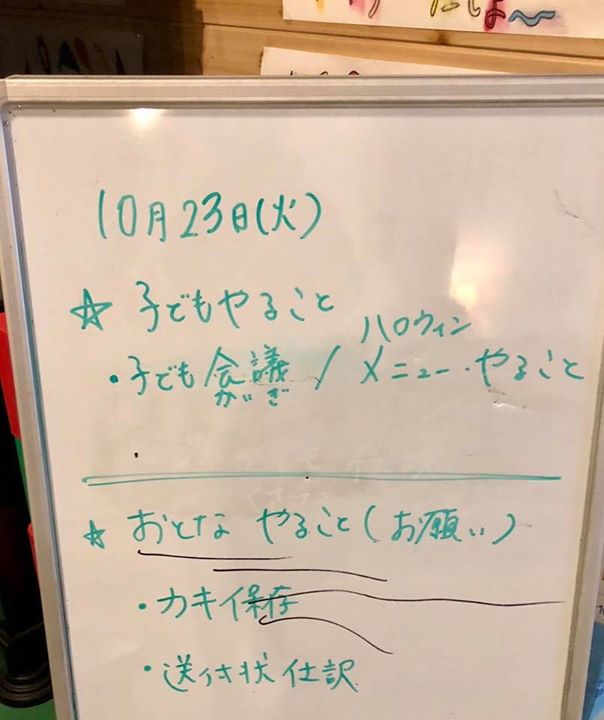 10月23日(火)
☆ 子どもやること
ハロウィン
・子ども会議 / メニュー・やること
かいぎ
・
☆ おとな やること(お願い)
・カキ保存
・送付状仕訳